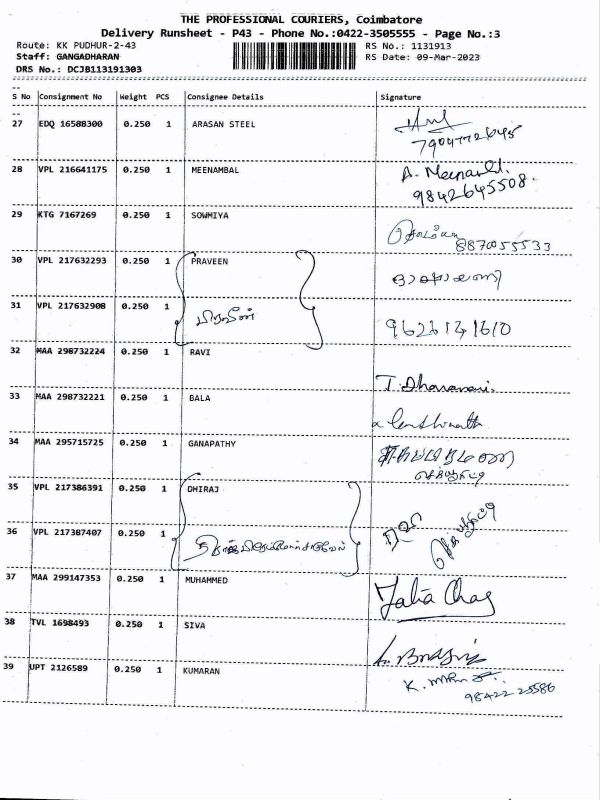 THE PROFESSIONAL COURIERS, Coimbatore
Delivery Runsheet - P43 - Phone No.:0422-3505555 - Page No.:3
Route: KK PUDHUR-2-43 RS No.: 1131913
Staff: GANGADHARAN RS Date: 09-Mar-2023
DRS No.: DCJB113191303
S No Consignment No Weight PCS Consignee Details Signature
27 EDQ 16588300 0.250 1 ARASAN STEEL
28 VPL 216641175 0.250 1 MEENAMBAL A. Meenambal.
9842645508.
29 KTG 7167269 0.250 1 SOWMIYA
8870055533
30 VPL 217632293 0.250 1 PRAVEEN
31 VPL 217632908 0.250 1 பிரவீன்
32 MAA 298732224 0.250 1 RAVI T. Dhanamani.
33 MAA 298732221 0.250 1 BALA
34 MAA 295715725 0.250 1 GANAPATHY
செக்யூரிட்டி
35 VPL 217386391 0.250 1 DHIRAJ
36 VPL 217387407 0.250 1
37 MAA 299147353 0.250 1 MUHAMMED
38 TVL 1698493 0.250 1 SIVA
39 UPT 2126589 0.250 1 KUMARAN
98422 25586